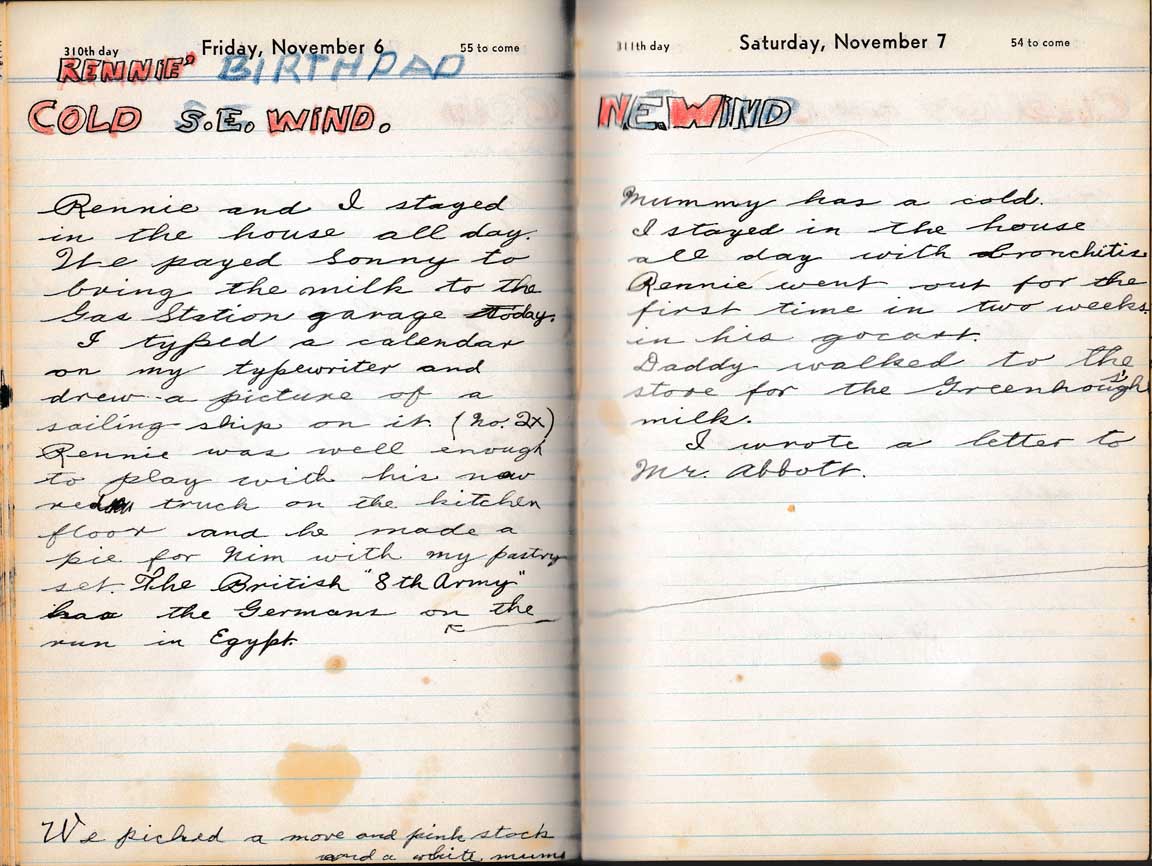 310th day Friday, November 6 55 to come
RENNIE' BIRTHDAD
COLD S.E. WIND.
Rennie and I stayed
in the house all day.
We payed Sonny to
bring the milk to the
Gas Station garage today.
I typed a calendar
on my typewriter and
drew a picture of a
sailing ship on it. (No. 2x)
Rennie was well enough
to play with his new
red truck on the kitchen
floor and he made a
pie for Nim with my pastry
set. The British "8th Army"
has the Germans on the
run in Egypt.
We picked a move and pink stock
and a white mums
311th day Saturday, November 7 54 to come
N.E. WIND
Mummy has a cold.
I stayed in the house
all day with bronchitis
Rennie went out for the
first time in two weeks.
in his gocart.
Daddy walked to the
store for the Greenhough's
milk.
I wrote a letter to
Mr. Abbott.